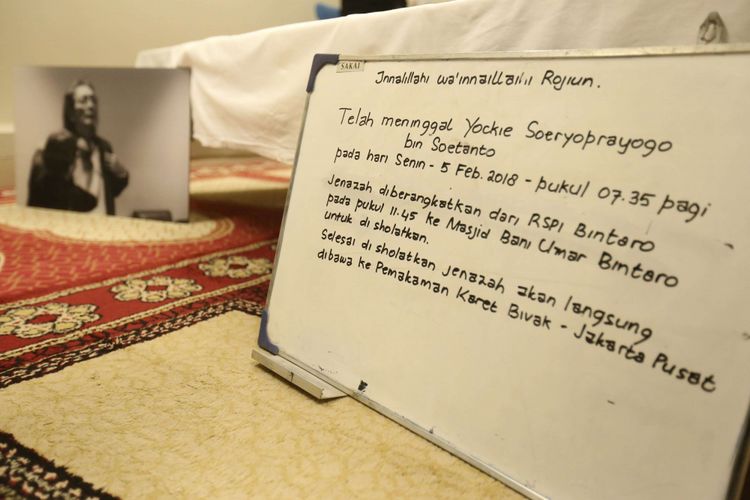 SAKAI
Innalillahi wa'innaillaihi Rojiun.
Telah meninggal Yockie Soeryoprayogo
bin Soetanto
pada hari Senin - 5 Feb. 2018 - pukul 07.35 pagi
Jenazah diberangkatkan dari RSPI Bintaro
pada pukul 11.45 ke Masjid Bani Umar Bintaro
untuk di sholatkan.
Selesai di sholatkan jenazah akan langsung
dibawa ke Pemakaman Karet Bivak - Jakarta Pusat